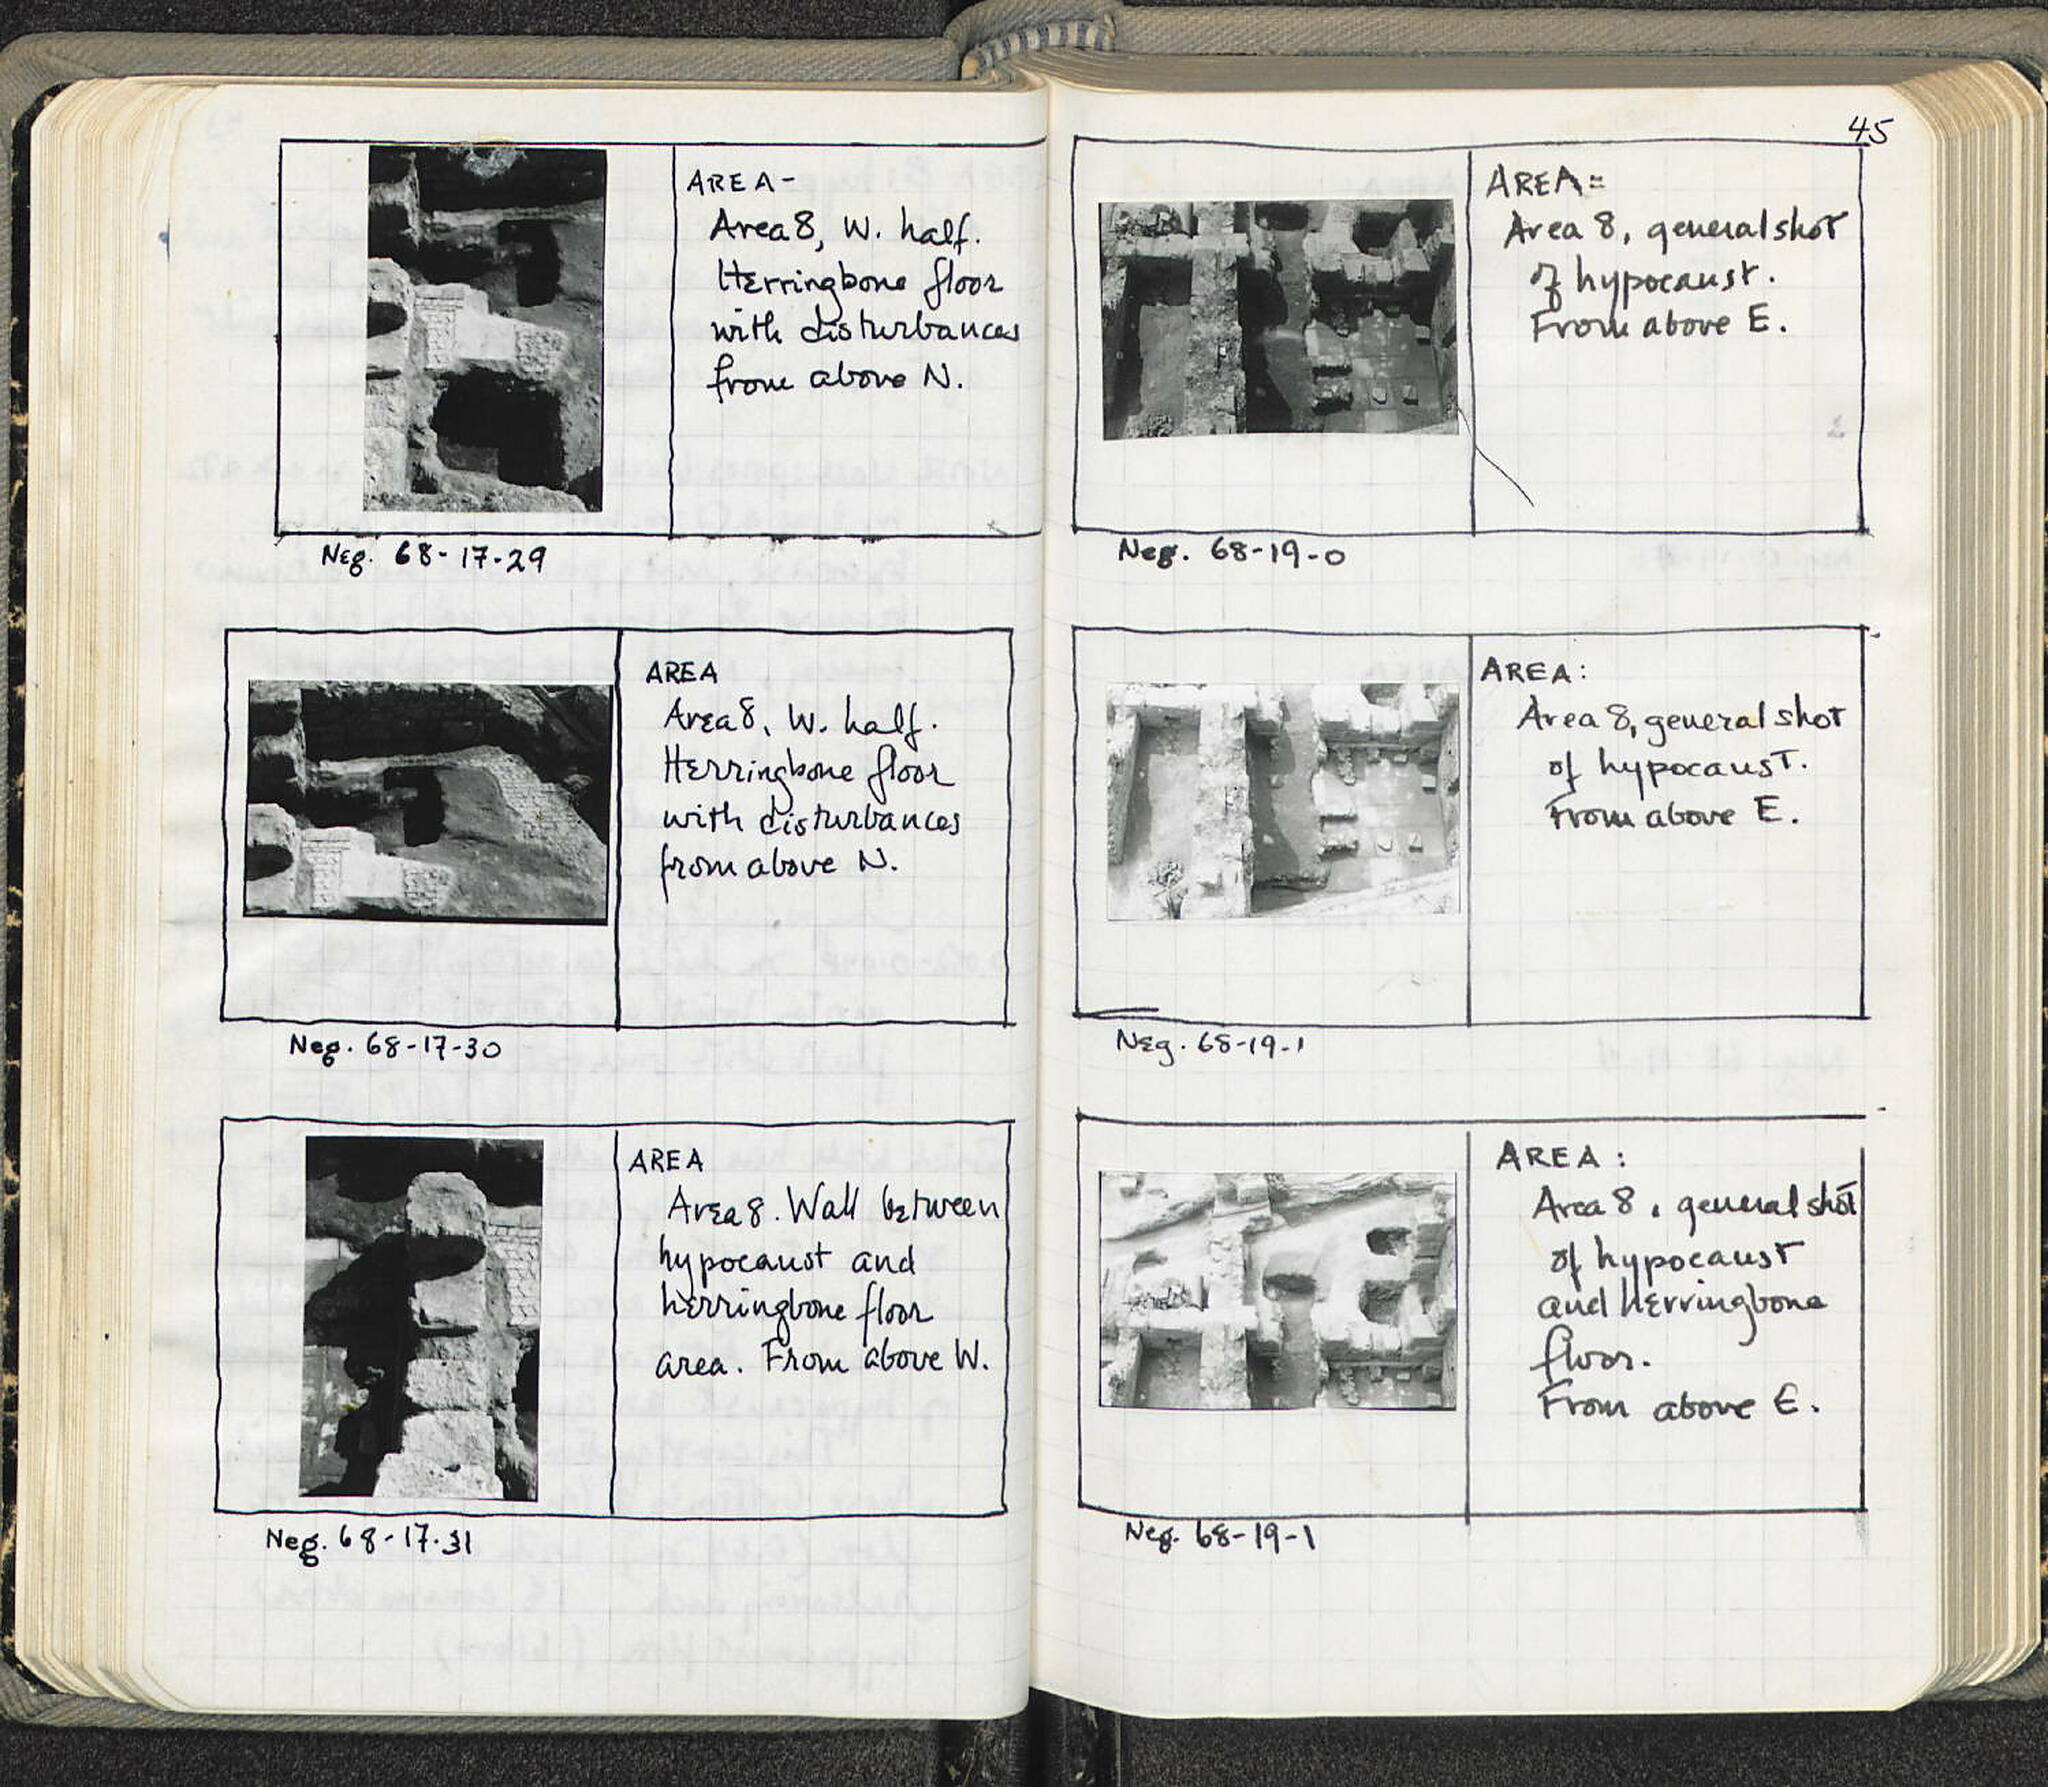 AREA-
Area 8, W. half.
Herringbone floor
with disturbances
from above N.
Neg. 68-17-29
AREA
Area 8, W. half.
Herringbone floor
with disturbances
from above N.
Neg. 68-17-30
AREA
Area 8. Wall between
hypocaust and
herringbone floor
area. From above W.
Neg. 68-17-31
45
AREA=
Area 8, general shot
of hypocaust.
From above E.
Neg. 68-19-0
AREA:
Area 8, general shot
of hypocaust.
From above E.
Neg. 68-19-1
AREA:
Area 8, general shot
of hypocaust
and herringbone
floor.
From above E.
Neg. 68-19-1